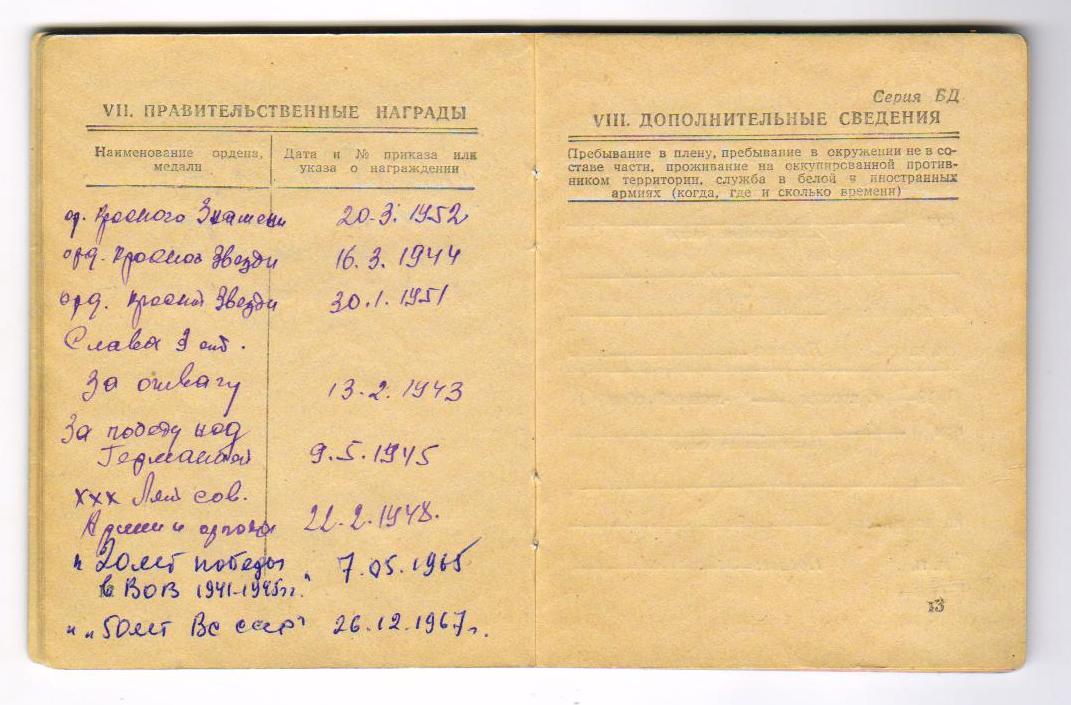 VII. ПРАВИТЕЛЬСТВЕННЫЕ НАГРАДЫ
Наименование ордена, медали
Дата и № приказа или указа о награждении
ор. Красного Знамени 20.3.1952
орд. Красной Звезды 16.3.1944
орд. Красной Звезды 30.1.1951
Слава 3 ст.
За отвагу 13.2.1943
За победу над
Германией 9.5.1945
ххх Лет сов.
Армии 22.2.1948.
" 20 лет победы
в ВОВ 1941-1945гг." 7.05.1965
" " 50 лет ВС СССР" 26.12.1967г.
Серия БД
VIII. ДОПОЛНИТЕЛЬНЫЕ СВЕДЕНИЯ
Пребывание в плену, пребывание в окружении не в со-
ставе части, проживание на оккупированной против-
ником территории, служба в белой и иностранных
армиях (когда, где и сколько времени)
13